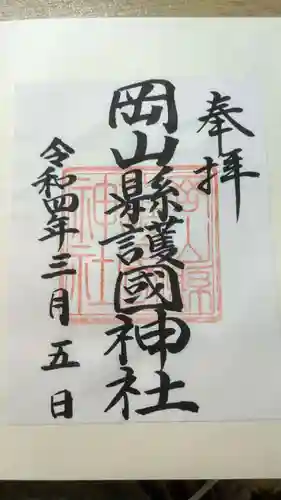 奉拝
岡山縣護國神社
令和四年三月五日